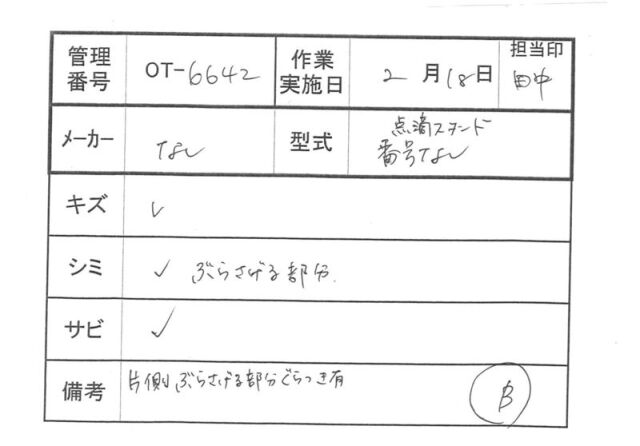 管理番号 OT-6642 作業実施日 2月18日 担当印 田中
メーカー なし 型式 点滴スタンド
番号なし
キズ ✓
シミ ✓ ぶらさげる部分.
サビ ✓
備考 片側ぶらさげる部分ぐらつき有
B